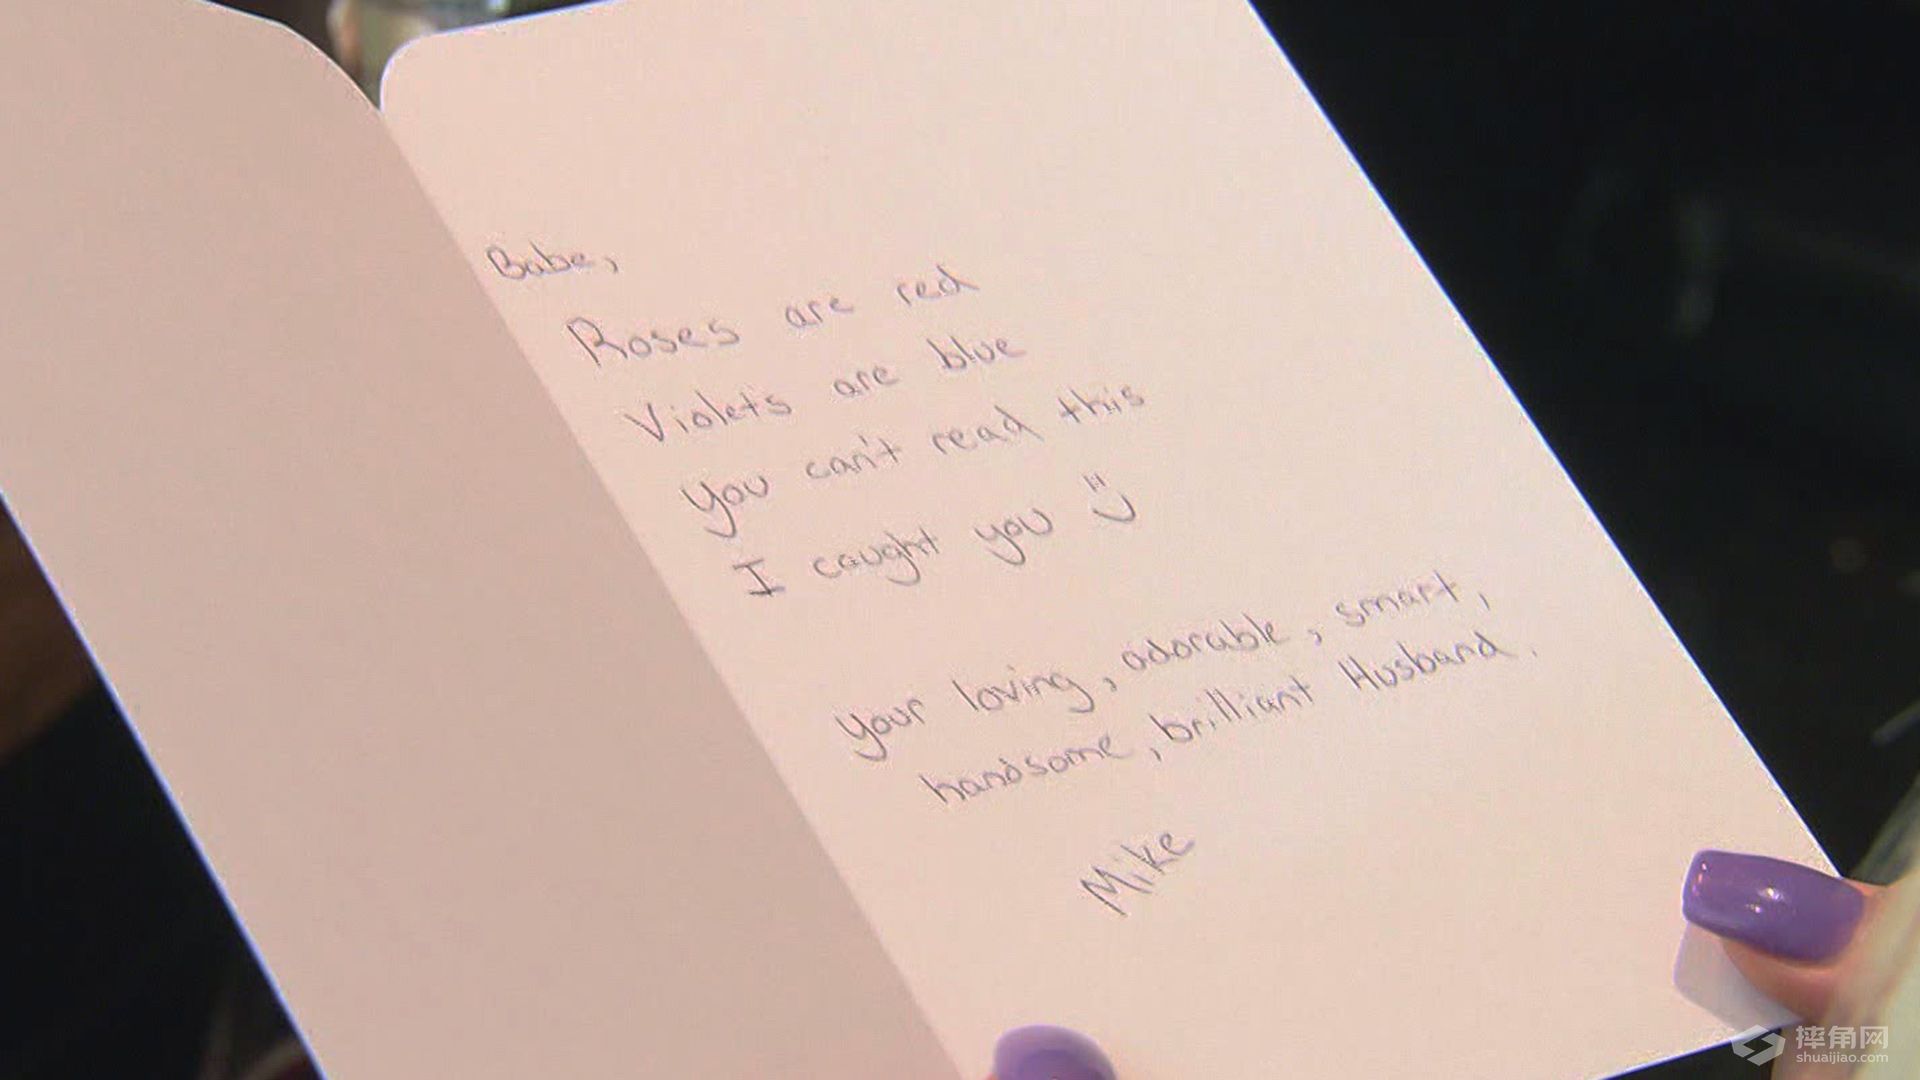 Babe,
Roses are red
Violets are blue
You can't read this
I caught you :)
your loving, adorable, smart,
handsome, brilliant Husband.
Mike
摔角网
shuaijiao.com